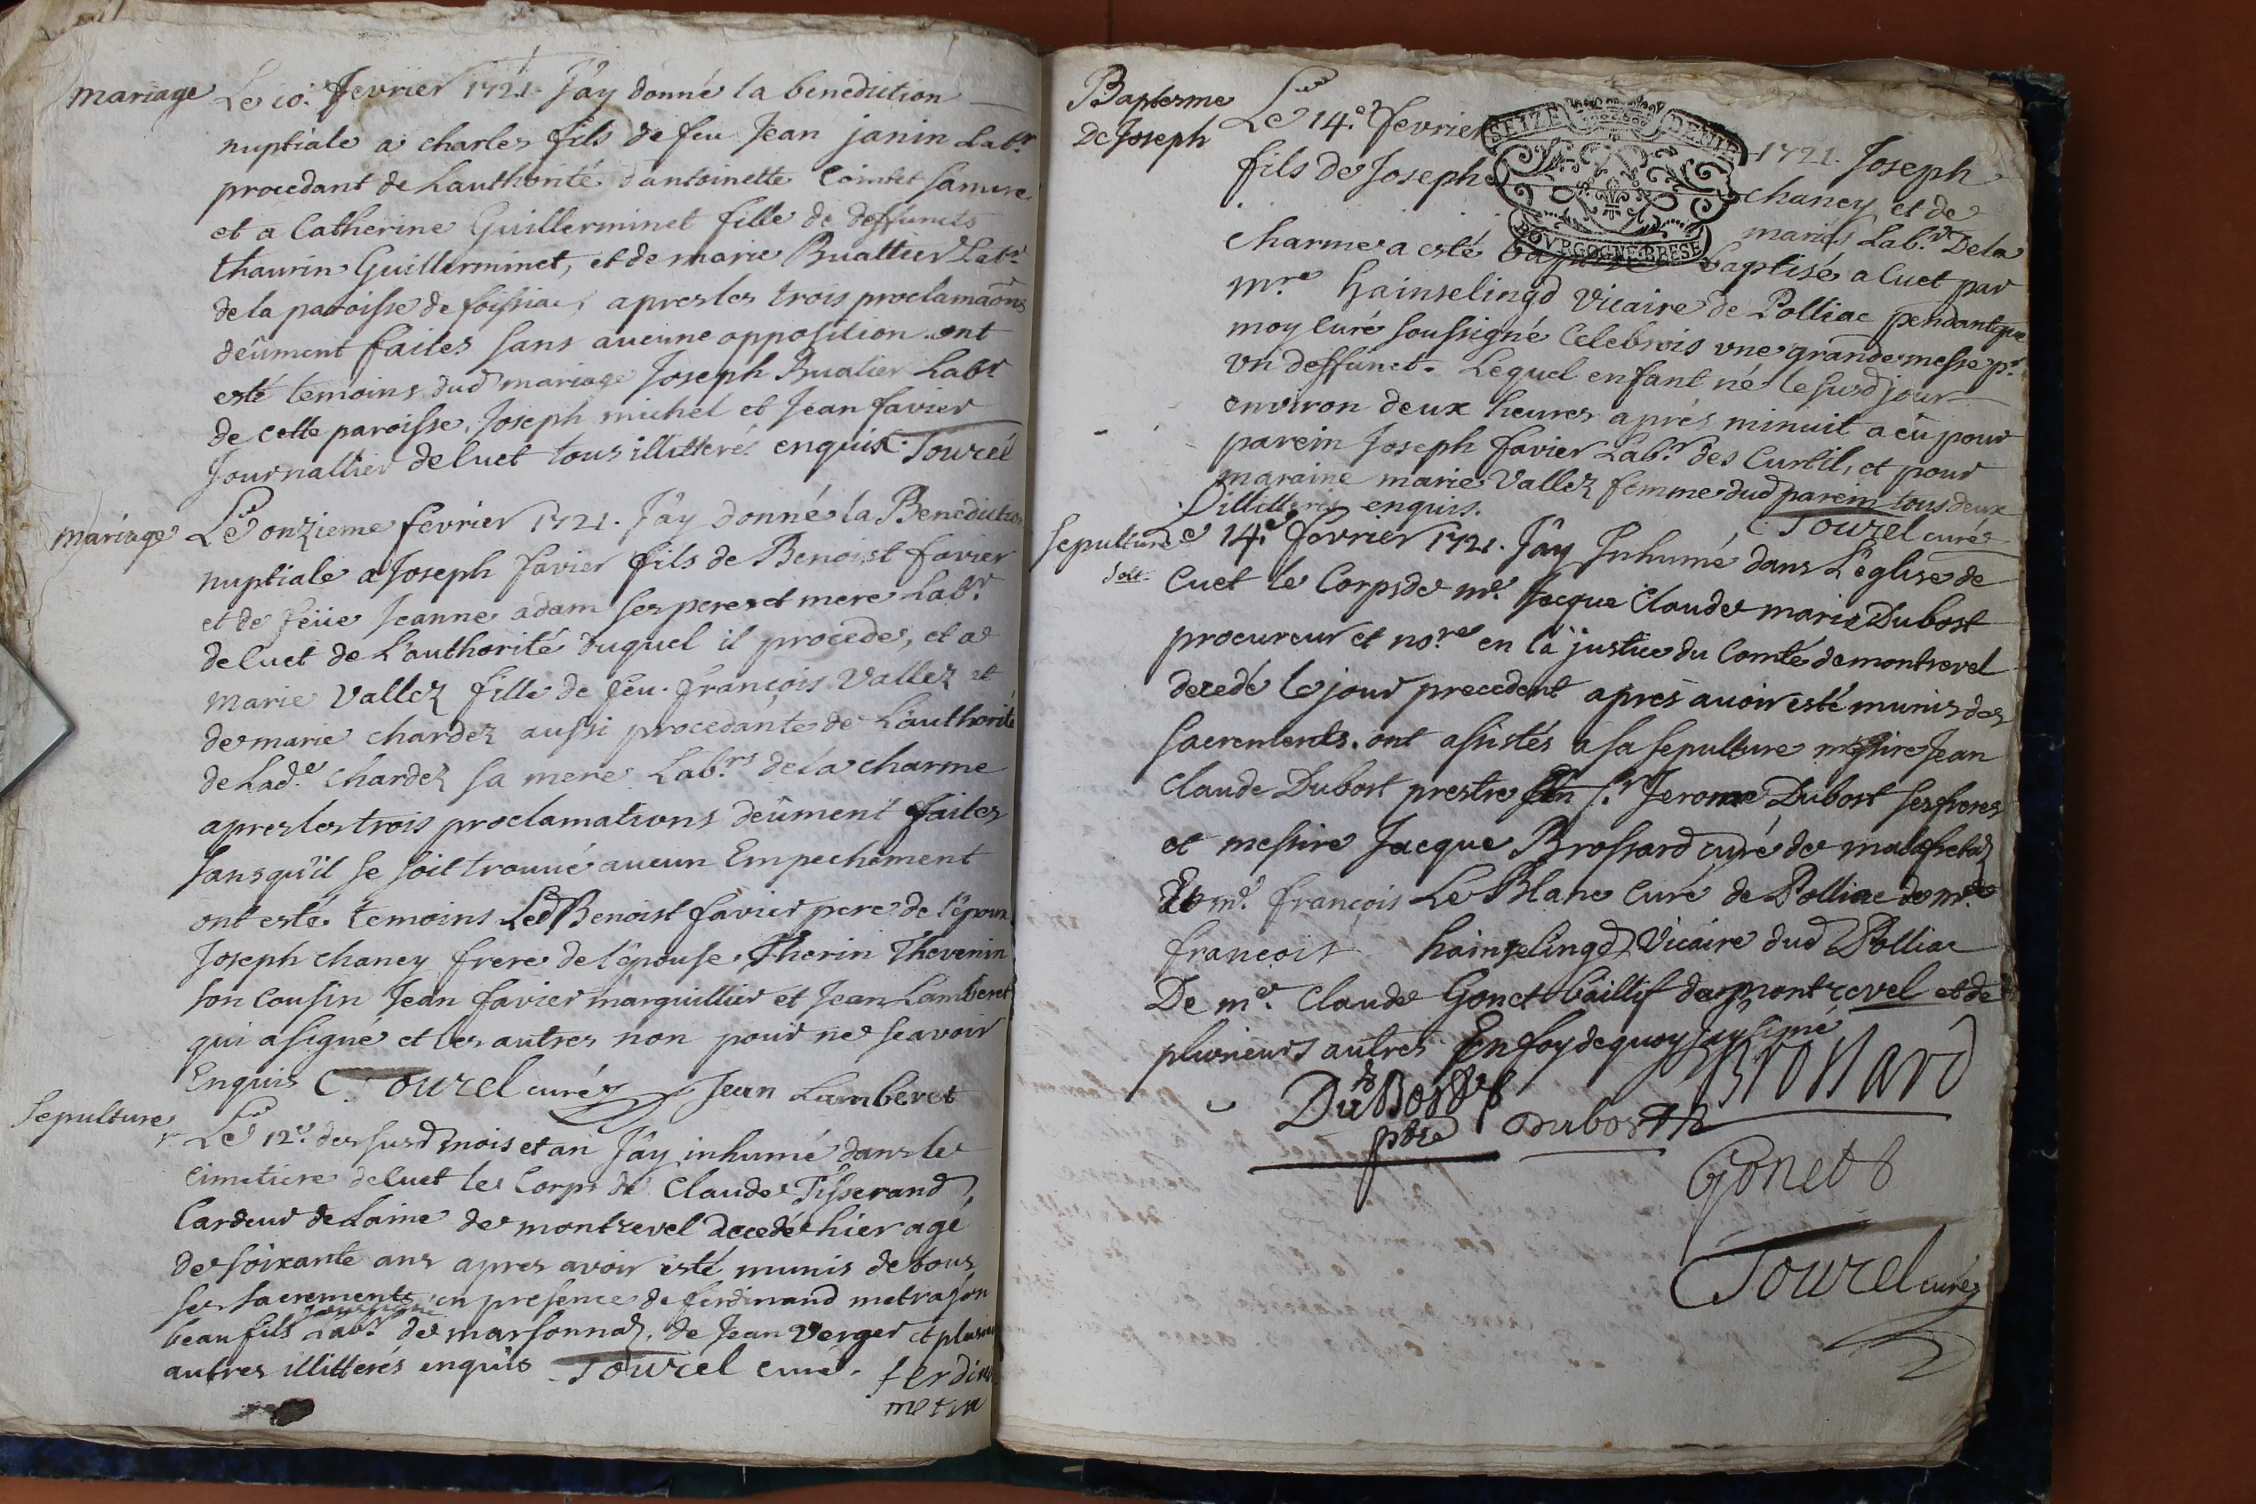 mariage
Le 10.e fevrier 1721. J'ay donné la benediction
nuptiale a charles fils de feu Jean janin Lab.r
procedant de Lauthorité d'antoinette Comtet sa mere
et a Catherine Guillerminet fille de deffuncts
thaurin Guillerminet, et de marie Buattier Lab.r
de la paroisse de foissiac, apres les trois proclamaons
deüment faites sans aucune opposition ont
esté temoins dud mariage Joseph Bualier Labr
de cette paroisse, Joseph michel et Jean favier
Journallier de Cuet tous illitterés enquis. Tourel
mariage
Le onzieme fevrier 1721. J'ay donné la Benediction
nuptiale a Joseph favier fils de Benoist favier
et de feüe Jeanne adam ses peres et mere Lab.r
de Cuet de L'authorité duquel il procede, et a
marie Vallez fille de feu françois Vallez et
de marie chardez aussi procedante de L'authorité
de Lad.e chardez sa mere Lab.rs de la charme
apres les trois proclamations deüment faites
sans qu'il se soit trouué aucun Empechement
ont esté temoins Led Benoist favier pere de l'époux
Joseph chaney frere de l'épouse, Therin Thevenin
son Cousin Jean favier marguillier et Jean Lamberet
qui a signé et les autres non pour ne scavoir
Enquis C. Tourel curé Jean Lamberet
Sepulture
Le 12.e des susd mois et an J'ay inhumé dans le
Cimetiere de Cuet le Corps de Claude Tisserand
Cardeur de Laine de montrevel decedé hier agé
de soixante ans apres avoir esté munis de tous
ses sacrements en presence de ferdinand metrason
soussigné
beaufils Lab.r de marsonnaz, de Jean Verger et plusieu
autres illitterés enquis Tourel curé. ferdina
metra
Baptesme
De Joseph
Le 14.e fevrier 1721. Joseph
fils de Joseph chaney et de
mariés Lab.r De la
SEIZE DENIE
BOVRGOGNE BRESE
charme a esté baptisé baptisé a Cuet par
m.re hainselingd Vicaire de Polliac pendant que
moy Curé soussigné Celebrois une grande messe p.r
un deffunct. Lequel enfant né le susd jour
environ deux heures aprés minuit a eü pour
parein Joseph favier Lab.r des Curtil, et pour
maraine marie Vallez femme dud parein tous deux
illitterés enquis. C. Tourel curé
sepulture
Le 14.e fevrier 1721. J'ay Inhumé dans L'eglise de
Cuet le Corps de m.e Jacque Claude marie Dubost
procureur et no.re en la justice du Comté de montrevel
decedé le jour precedent apres auoir esté munis des
sacrements. ont assistés a sa sepulture messire Jean
Claude Dubost prestre s.r Jerome Dubost ses freres
et messire Jacque Brossard curé de malafretaz
Et m.e françois Le Blanc Curé de Polliac de m.re
françois hainselingd Vicaire dud Polliac
De m.e Claude Gonet baillif de montrevel et de
plusieurs autres En foy dequoy jay signé
Brossard
DuBost
ptre
Dubost
Gonet
C Tourel curé